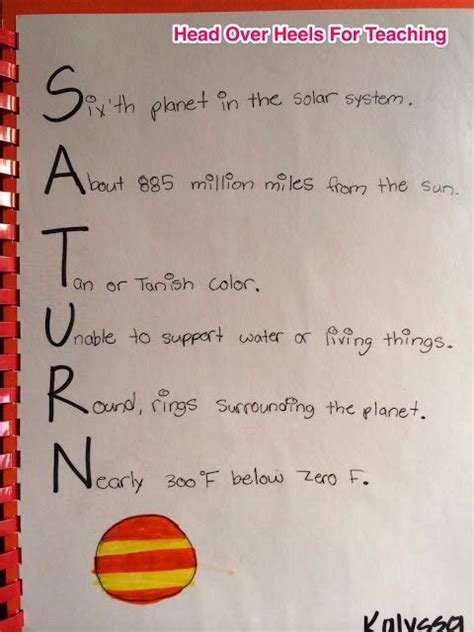 Head Over Heels For Teaching
Six'th planet in the solar system.
About 885 million miles from the sun.
Tan or Tanish color.
Unable to support water or living things.
Round, rings surrounding the planet.
Nearly 300°F below zero F.
Kalyssa